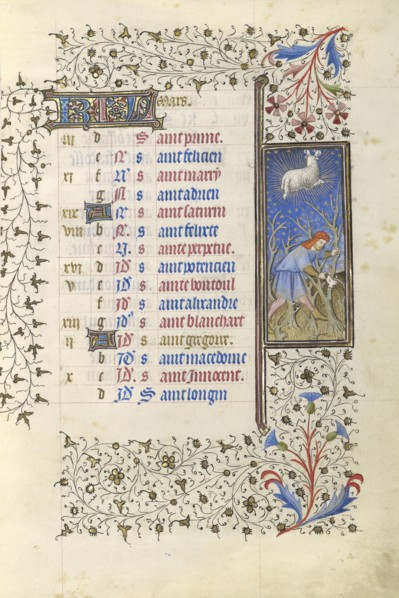 KL mars.
iii d Saint prime.
e N saint felicien
xi f N saint marry
g N saint adrien
xix A N saint saturni
viii b N saint felixet
c N. sainte perpetue.
xvi d Id saint potencien
v e Id saint boutoul
f Id saint alixandre
xiii g Id saint blanchart
ii A Id saint gregoire.
b Id saint macedoine
x c Id. saint Innocent.
d Id Saint longin